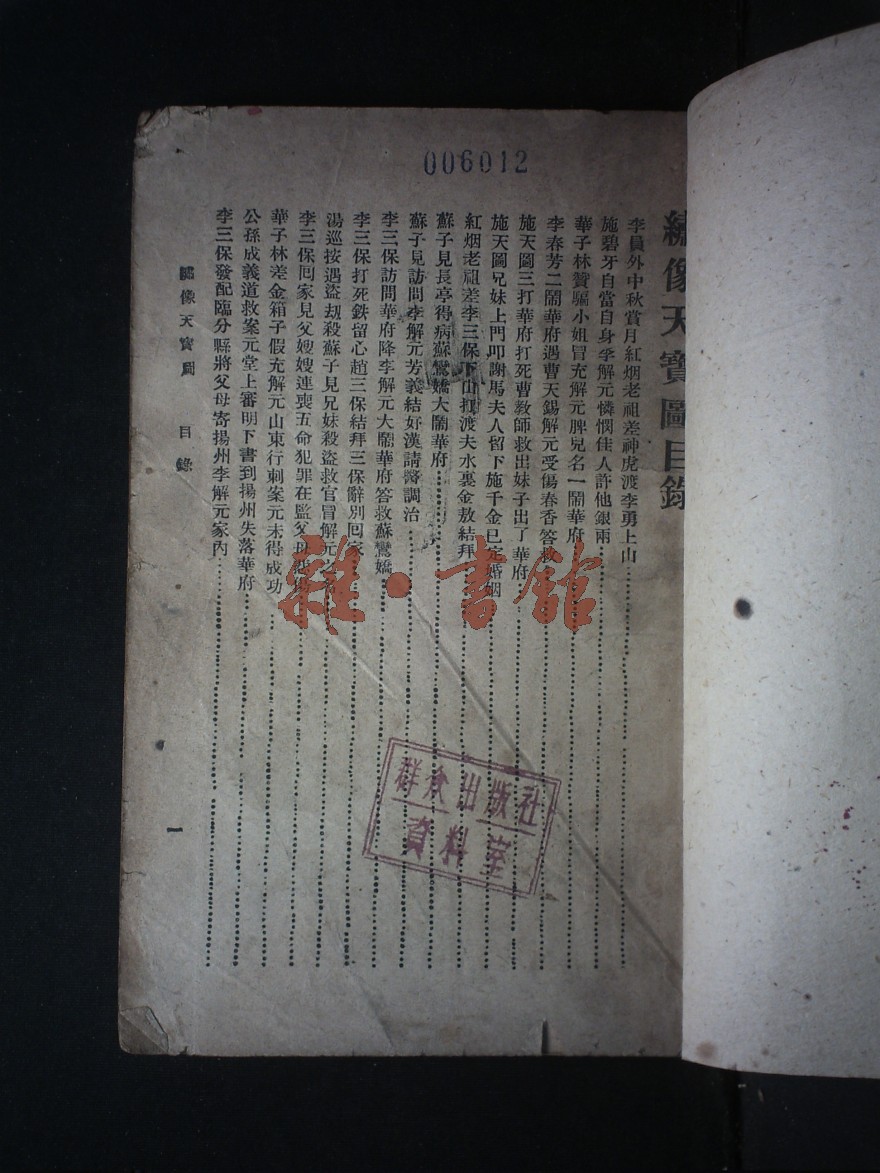 006012
繡像天寶圖目錄
李員外中秋賞月紅烟老祖差神虎渡李勇上山
施碧牙自當自身李解元憐憫佳人許他銀兩
華子林贊騙小姐冒充解元脾兒名一鬧華府
李春芳二鬧華府遇曹天錫解元受傷春香答救
施天圖三打華府打死曹教師救出妹子出了華府
施天圖兄妹上門叩謝馬夫人留下施千金已定婚姻
紅烟老祖差李三保下山打渡夫水裏金敖結拜
蘇子見長亭得病蘇鸞嬌大鬧華府
蘇子見訪問李解元芳義結好漢請醫調治
李三保訪問華府降李解元大鬧華府答救蘇鸞嬌
李三保打死鉄留心趙三保結拜三保辭別回家
湯巡按遇盜劫殺蘇子見兄妹殺盜救官冒解元
李三保回家見父嫂嫂連喪五命犯罪在監父母
華子林差金箱子假充解元山東行刺案元未得成功
公孫成義道救案元堂上審明下書到揚州失落華府
李三保發配臨分縣將父母寄揚州李解元家內
繡像天寶圖 目錄 一
雜·書館
群众出版社
資料室